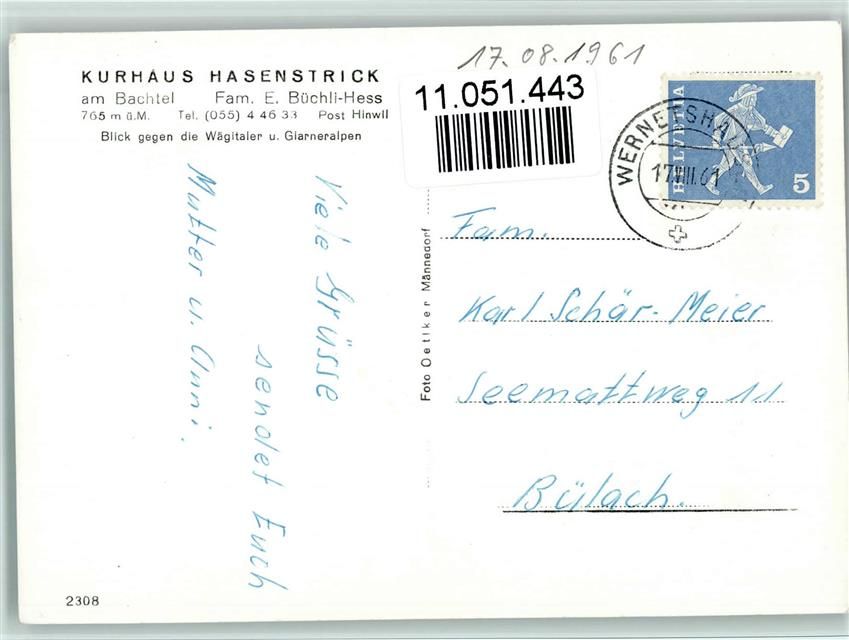 KURHAUS HASENSTRICK
am Bachtel Fam. E. Büchli-Hess
765 m ü.M. Tel. (055) 4 46 33 Post Hinwil
Blick gegen die Wägitaler u. Glarneralpen
17.08.1961
11.051.443
HELVETIA
5
17.VIII.61
Viele Grüsse
sendet Euch
Mutter u. Anni.
Foto Oetiker Männedorf
Fam.
Karl Schär-Meier
Seemattweg 11
Bülach.
2308